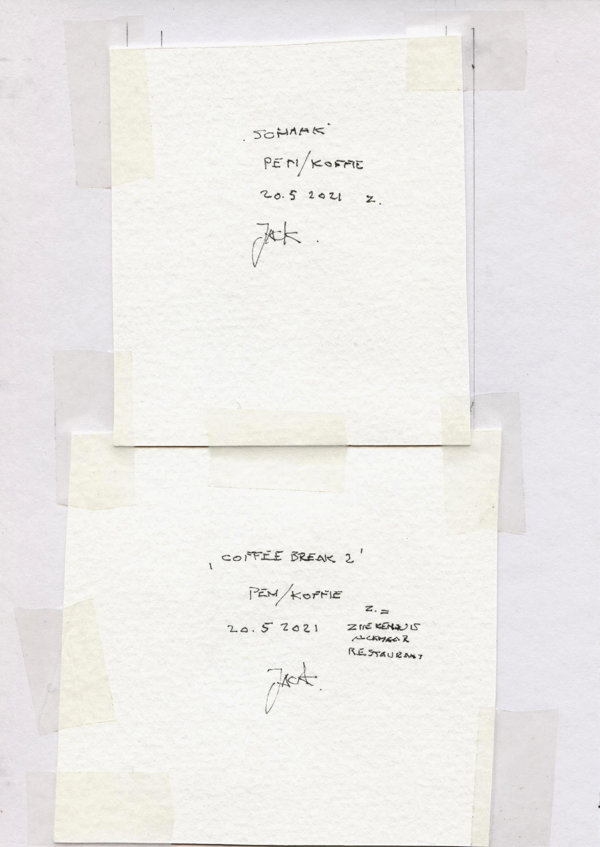 PEN/KOFFIE
20.5 2021 Z.
Jack.
'COFFEE BREAK 2'
PEN/KOFFIE
Z. =
20.5 2021 ZIEKENHUIS
ALKMAAR
RESTAURANT
Jack.